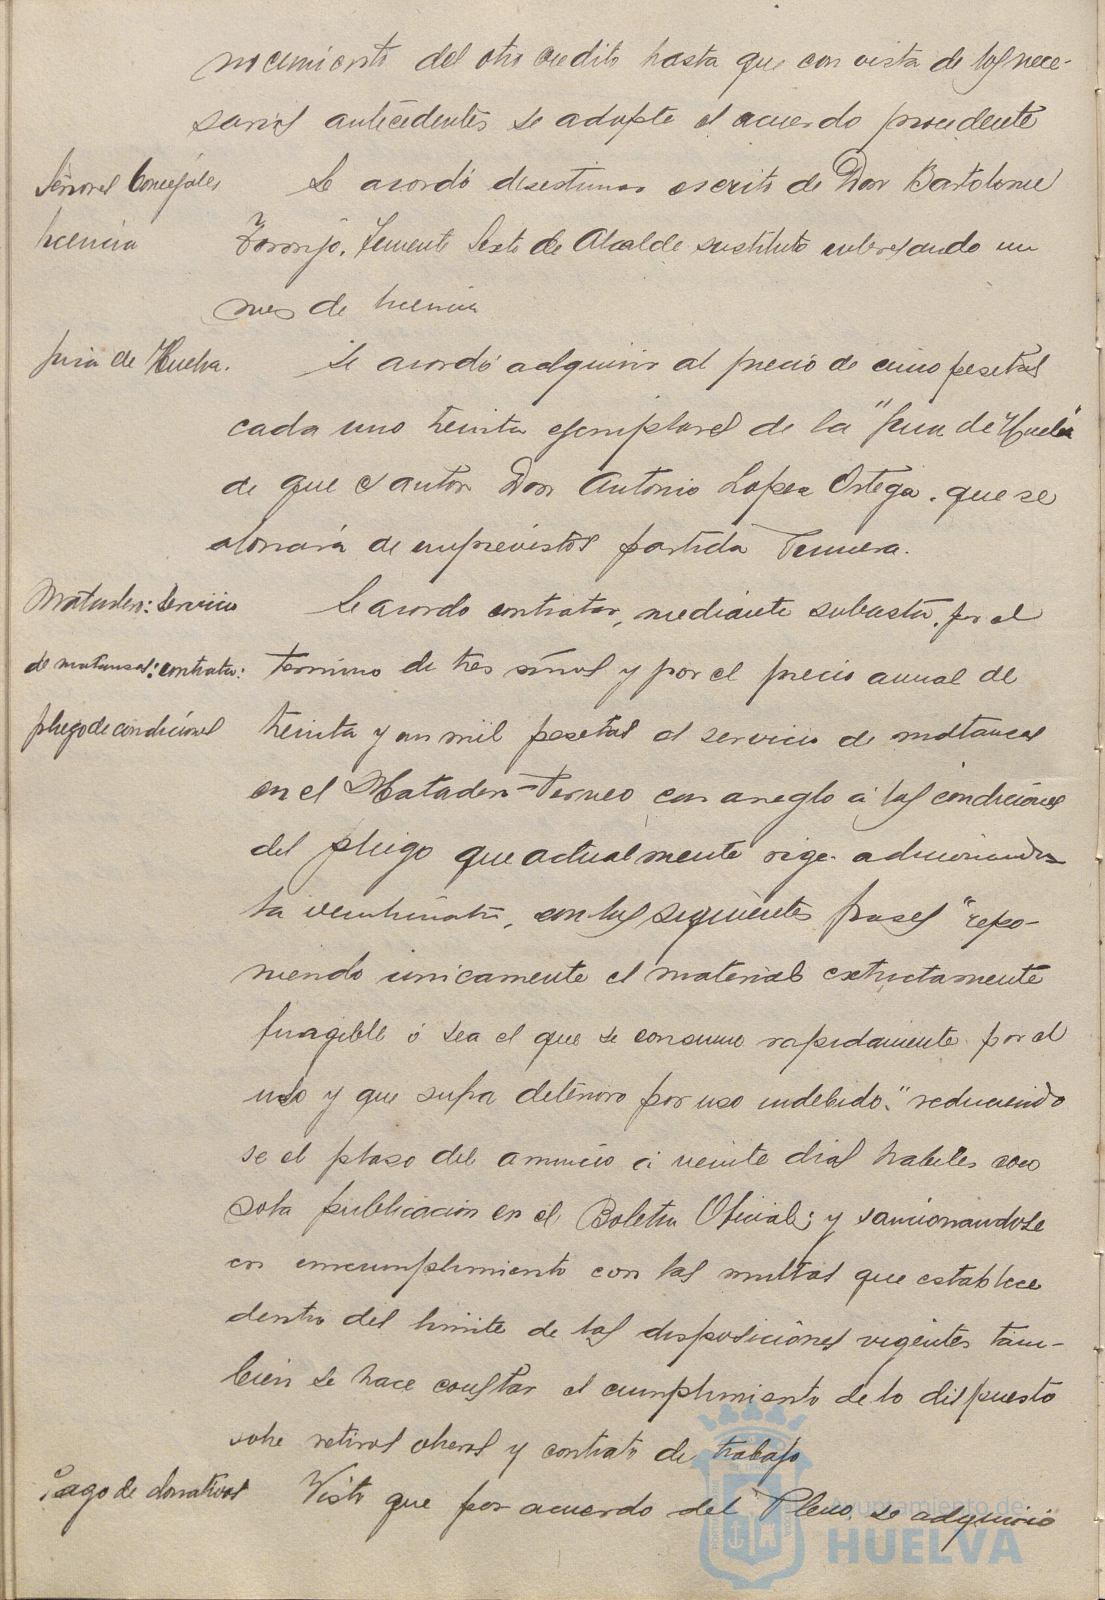 nocimiento del otro credito hasta que con vista de los nece-
sarios antecedentes se adopte el acuerdo procedente
Señores Concejales Se acordó desestimar escrito de Don Bartolome
licencia Toronjo, Teniente Sexto de Alcalde sustituto interesando un
mes de licencia
Guia de Huelva. Se acordó adquirir al precio de cinco pesetas
cada uno treinta ejemplares de la "Guia de Huelva"
de que es autor Don Antonio Lopez Ortega, que se
abonará de imprevistos partida Tercera.
Matadero: Servicio Se acordo contratar, mediante subasta, por el
de matanzas: contrato: termino de tres años y por el precio anual de
pliego de condiciones treinta y un mil pesetas el servicio de matanzas
en el Matadero con arreglo á las condiciones
del pliego que actualmente rige adicionando
la con las siguientes frases "repo-
niendo unicamente el material estrictamente
fungible ó sea el que se consume rapidamente por el
uso y que sufra deterioro por uso indebido." reduciendo
se el plazo del anuncio á veinte dias habiles con
sola publicacion en el Boletin Oficial; y sancionandose
en incumplimiento con las multas que establece
dentro del limite de las disposiciones vigentes tam-
bien se hace constar el cumplimiento de lo dispuesto
sobre retiros obreros y contrato de trabajo
Pago de donativos Visto que por acuerdo del Pleno se adquirió
Ayuntamiento de
HUELVA